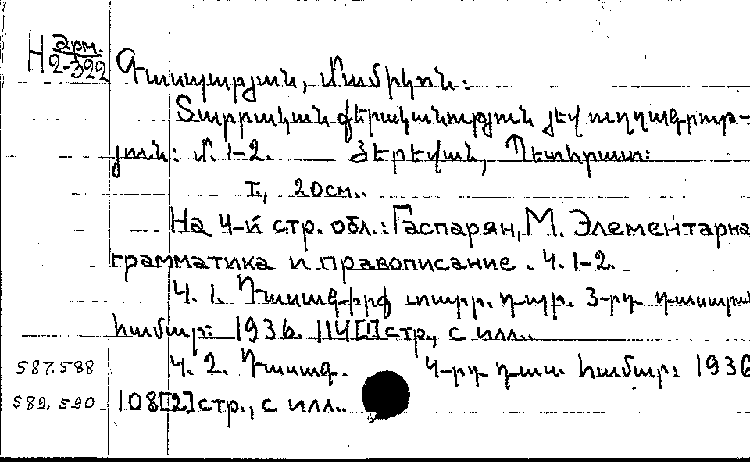 Н арм.
2-322
Գասպարյան, Մամիկոն:
Տարրական քերականություն յեվ ուղղագրութ-
յուն: Մ. 1-2. Յերեվան, Պետհրատ:
т., 20см..
На 4-й стр. обл.: Гаспарян, М. Элементарна
грамматика и правописание. Ч. 1-2.
Ч. 1. Դասագիրք տարր. դպր. 3-րդ դասարան
համար: 1936. 114[1]стр., с илл..
587.588 Ч. 2. Դասագ. 4-րդ դաս. համար: 1936
589.590 108[2]стр., с илл..